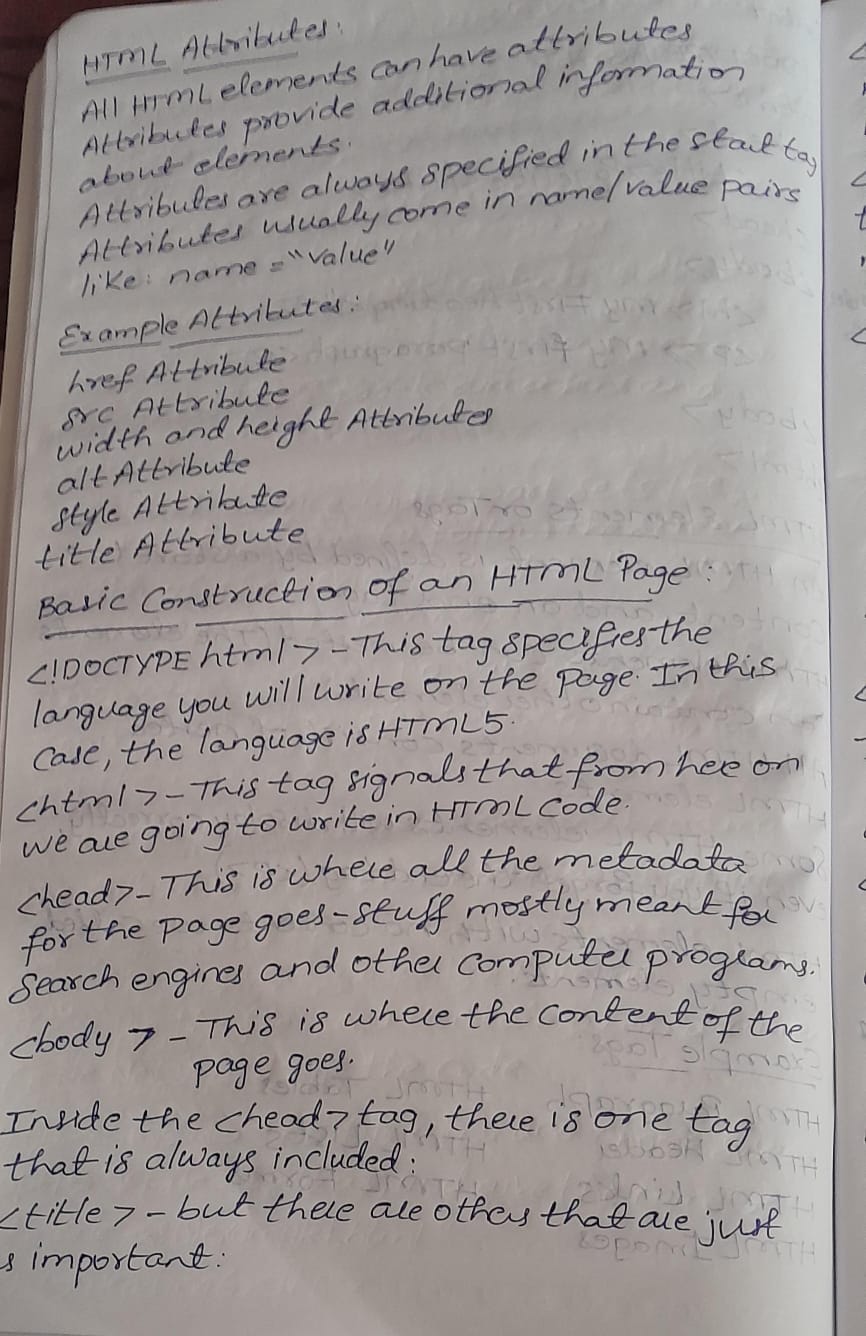 HTML Attributes:
All HTML elements can have attributes
Attributes provide additional information
about elements.
Attributes are always specified in the start tag
Attributes usually come in name/value pairs
like: name = "value"
Example Attributes:
href Attribute
src Attribute
width and height Attributes
alt Attribute
style Attribute
title Attribute
Basic Construction of an HTML Page:
<!DOCTYPE html> - This tag specifies the
language you will write on the page. In this
case, the language is HTML5.
<html> - This tag signals that from hee on
we are going to write in HTML code.
<head> - This is where all the metadata
for the page goes - stuff mostly meant for
Search engines and other computer programs.
<body> - This is where the content of the
page goes.
Inside the <head> tag, there is one tag
that is always included:
<title> - but there are others that are just
s important: